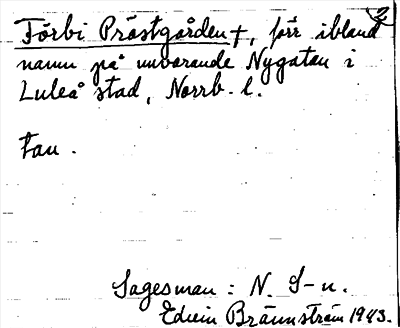 2
Förbi Prästgården †, förr ibland
namn på nuvarande Nygatan i
Luleå stad, Norrb. l.
Fan.
Sagesman: N. S-n.
Edvin Brännström 1943.